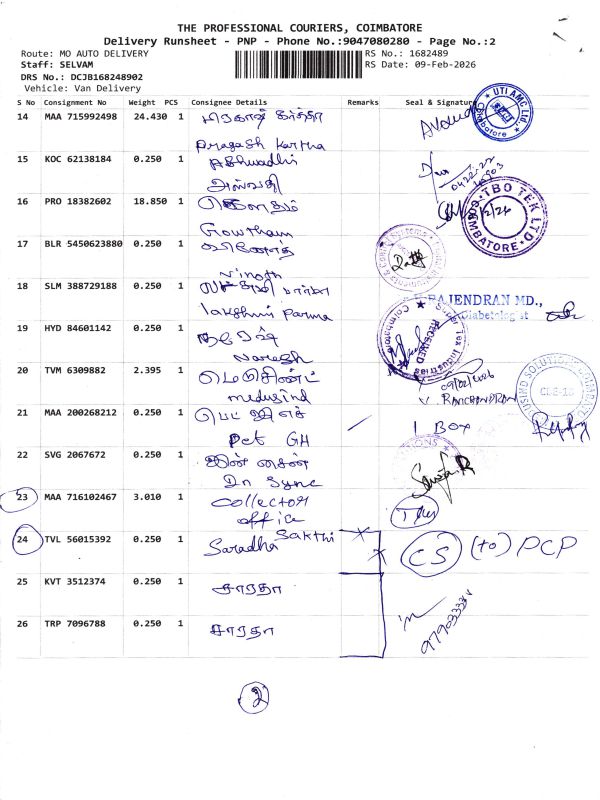 THE PROFESSIONAL COURIERS, COIMBATORE
Delivery Runsheet - PNP - Phone No.:9047080280 - Page No.:2
Route: MO AUTO DELIVERY RS No.: 1682489
Staff: SELVAM RS Date: 09-Feb-2026
DRS No.: DCJB168248902
Vehicle: Van Delivery
S No Consignment No Weight PCS Consignee Details Remarks Seal & Signature
14 MAA 715992498 24.430 1 பிரகாஷ் கர்த்தா
Pragash Kartha
UTI AMC Ltd. Coimbatore
15 KOC 62138184 0.250 1 Ashwadhi
அஸ்வதி
16 PRO 18382602 18.850 1 கௌதம்
Gowtham
TBO TEK LTD COIMBATORE
17 BLR 5450623880 0.250 1 வினோத்
Vinoth
18 SLM 388729188 0.250 1 லட்சுமி பார்மா
lakshmi Parma
RAJENDRAN MD.,
Diabetologist
19 HYD 84601142 0.250 1 நரேஷ்
Naresh
RECEIVED
20 TVM 6309882 2.395 1 மெடிசிண்ட்
medusind
09/02/2026
V. RAMCHANDRAN
21 MAA 200268212 0.250 1 பெட் ஜி எச்
Pet GH
1 BOX
22 SVG 2067672 0.250 1 இன் சைன்
In Sync
23 MAA 716102467 3.010 1 Collector
office
24 TVL 56015392 0.250 1 Saradha Sakthi
CS (to) PCP
25 KVT 3512374 0.250 1 சாரதா
26 TRP 7096788 0.250 1 சாரதா
2